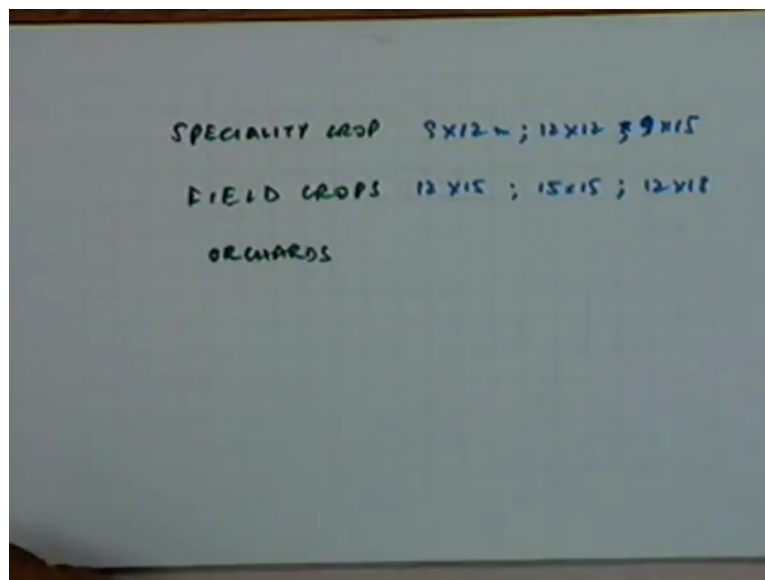 SPECIALITY CROP 9X12m ; 12X12 ; 9X15
FIELD CROPS 12X15 ; 15X15 ; 12X18
ORCHARDS